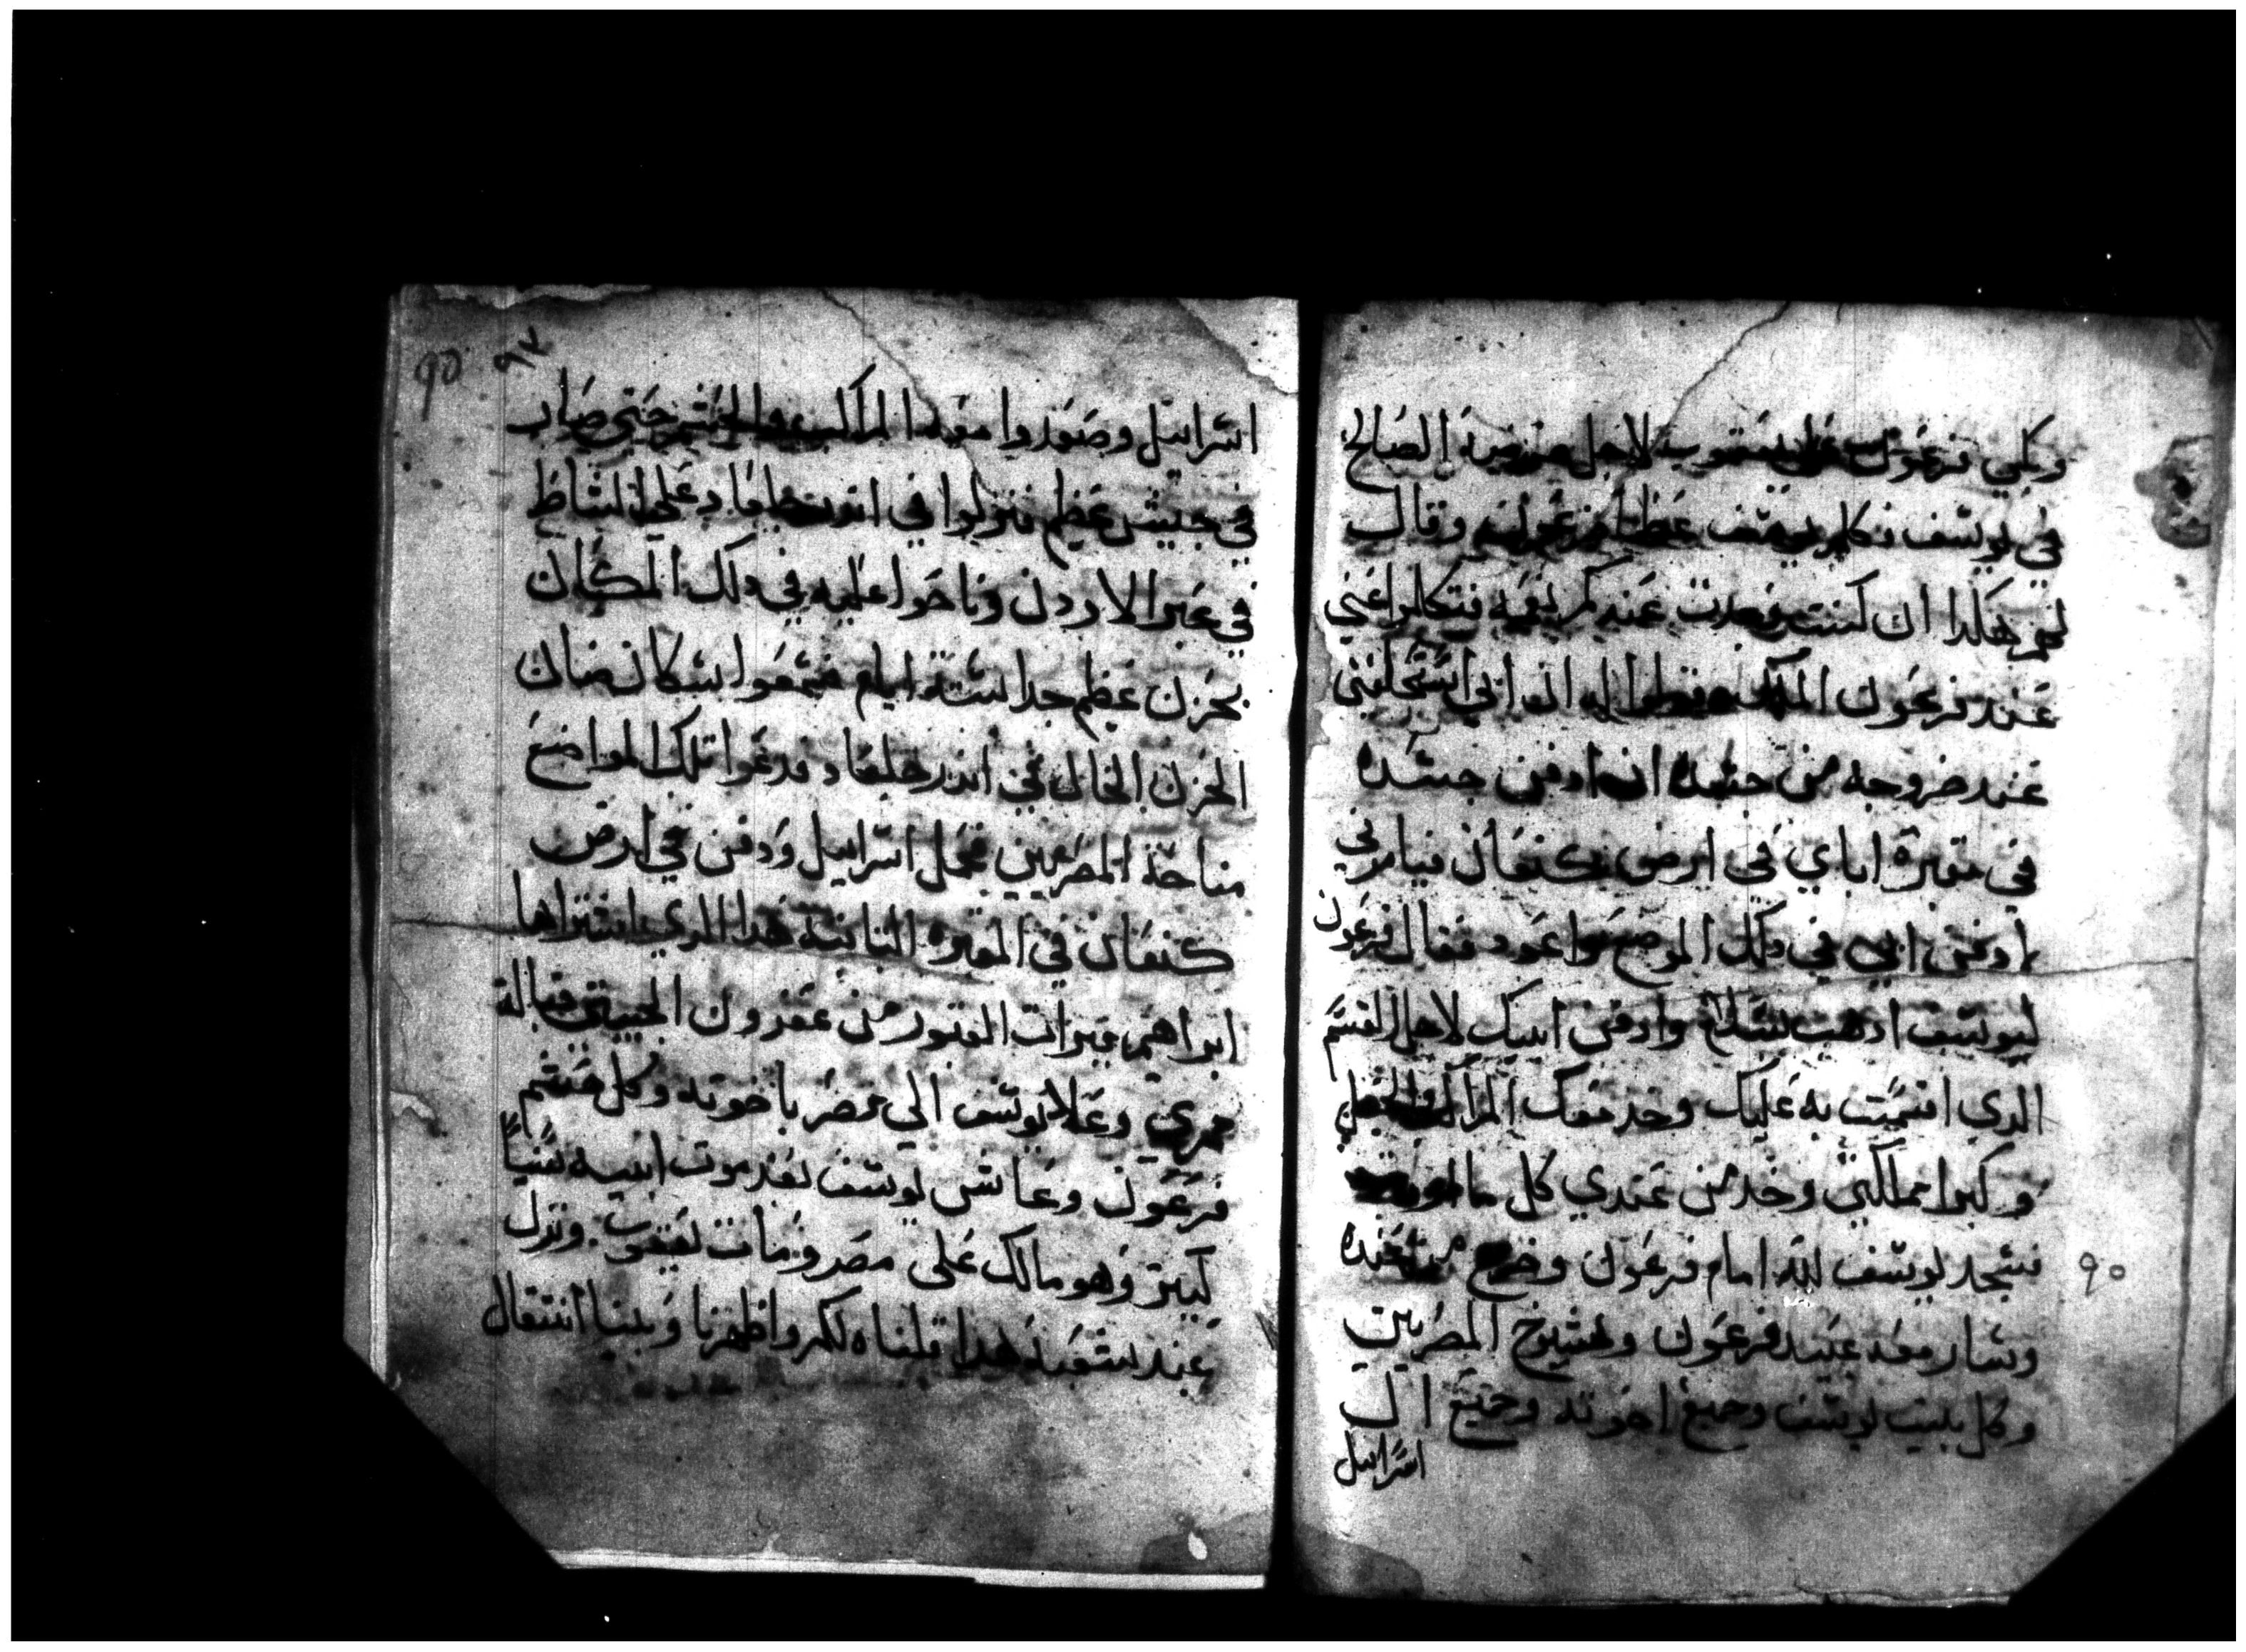 وبكي فرعون على يعقوب لاجل الصالح
في يوسف فكلم يوسف عظما فرعون وقال
لهم هكدا ان كنت وجدت عندكم نعمه فتكلموا عني
عند فرعون الملك وقولوا له ان ابي استحلفني
عند خروجه من جسده ان ادفن جسده
في مقبرة اباي في ارض كنعان فيامرني
ادفن ابي في دلك الموضع واعود فقال فرعون
ليوسف ادهب بسلام وادفن ابيك لاجل القسم
الدي اقسمت به عليك وخد معك المراكب والخيل
وكبرا مملكتي وخد من عندي كل ما
فسجد يوسف لله امام فرعون وخرج من عنده
وسار معه عبيد فرعون ومشيوخ المصريين
وكل بيت يوسف وجميع اخوته وجميع ال
اسراييل
٩٥
٩٧
اسراييل وصعدوا معه المراكب والحشم حتي صاب
في جيش عظيم فنزلوا في اندر حلعاد علي الشاط
في عبر الاردن وناحوا عليه في دلك المكان
بحزن عظيم جدا ستة ايام فسمعوا سكان
الحزن الخال في اندر حلعاد فدعوا تلك المواضع
مناحة المصريين فحمل اسراييل ودفن في ارض
كنعان في المقبره التانيه هدا الدي اشتراها
ابراهيم ميرات القبور من عفرون الحيتي قبالة
ممري وعلا يوسف الي مصر باخوته وكل حشم
فرعون وعاش يوسف بعد موت ابيه سنيا
كبير وهو مالك علي مصر ومات يعقوب ونزل
عند شعبه هدا قلناه لكم واظهرنا وبينا انتقال